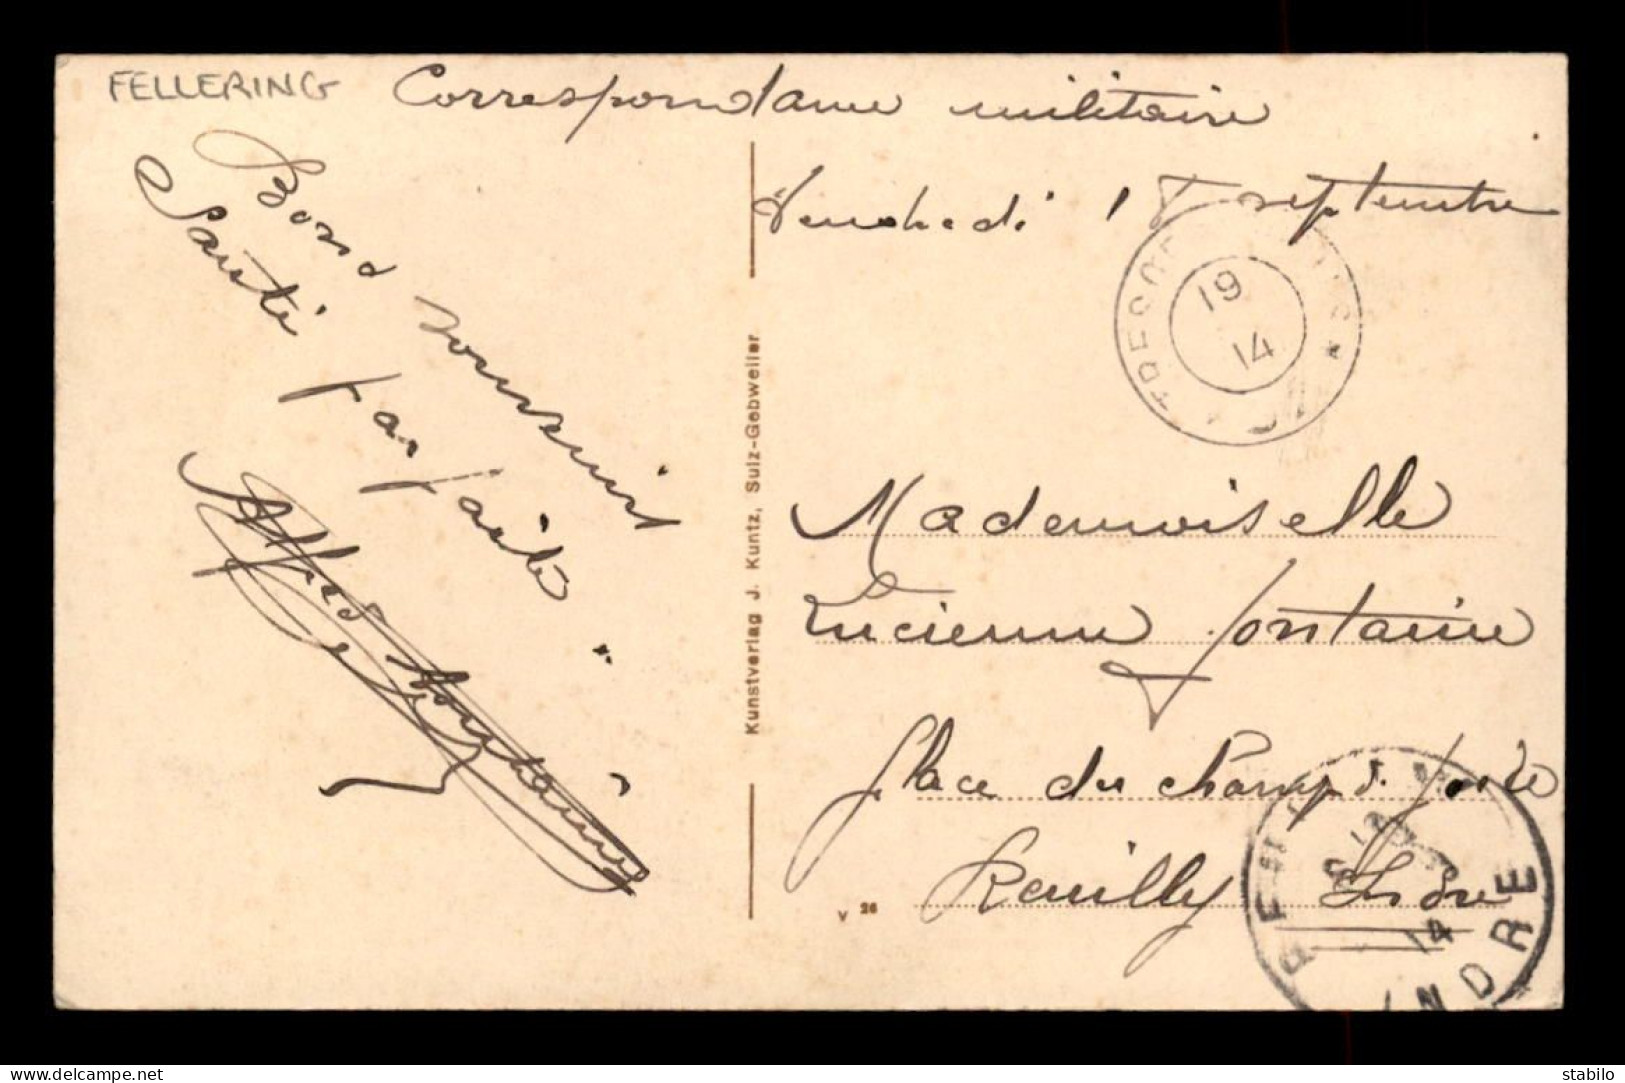 FELLERING
Correspondance militaire
Vendredi 1 septembre
Bons souvenirs
Santé parfaite
Alfred Fontaine
Kunstverlag J. Kuntz, Sulz-Gebweiler
TRESOR
19
14
Mademoiselle
Lucienne Fontaine
Place du Champ d. foire
Reuilly Indre
V 26
14
INDRE
www.delcampe.net
stabilo